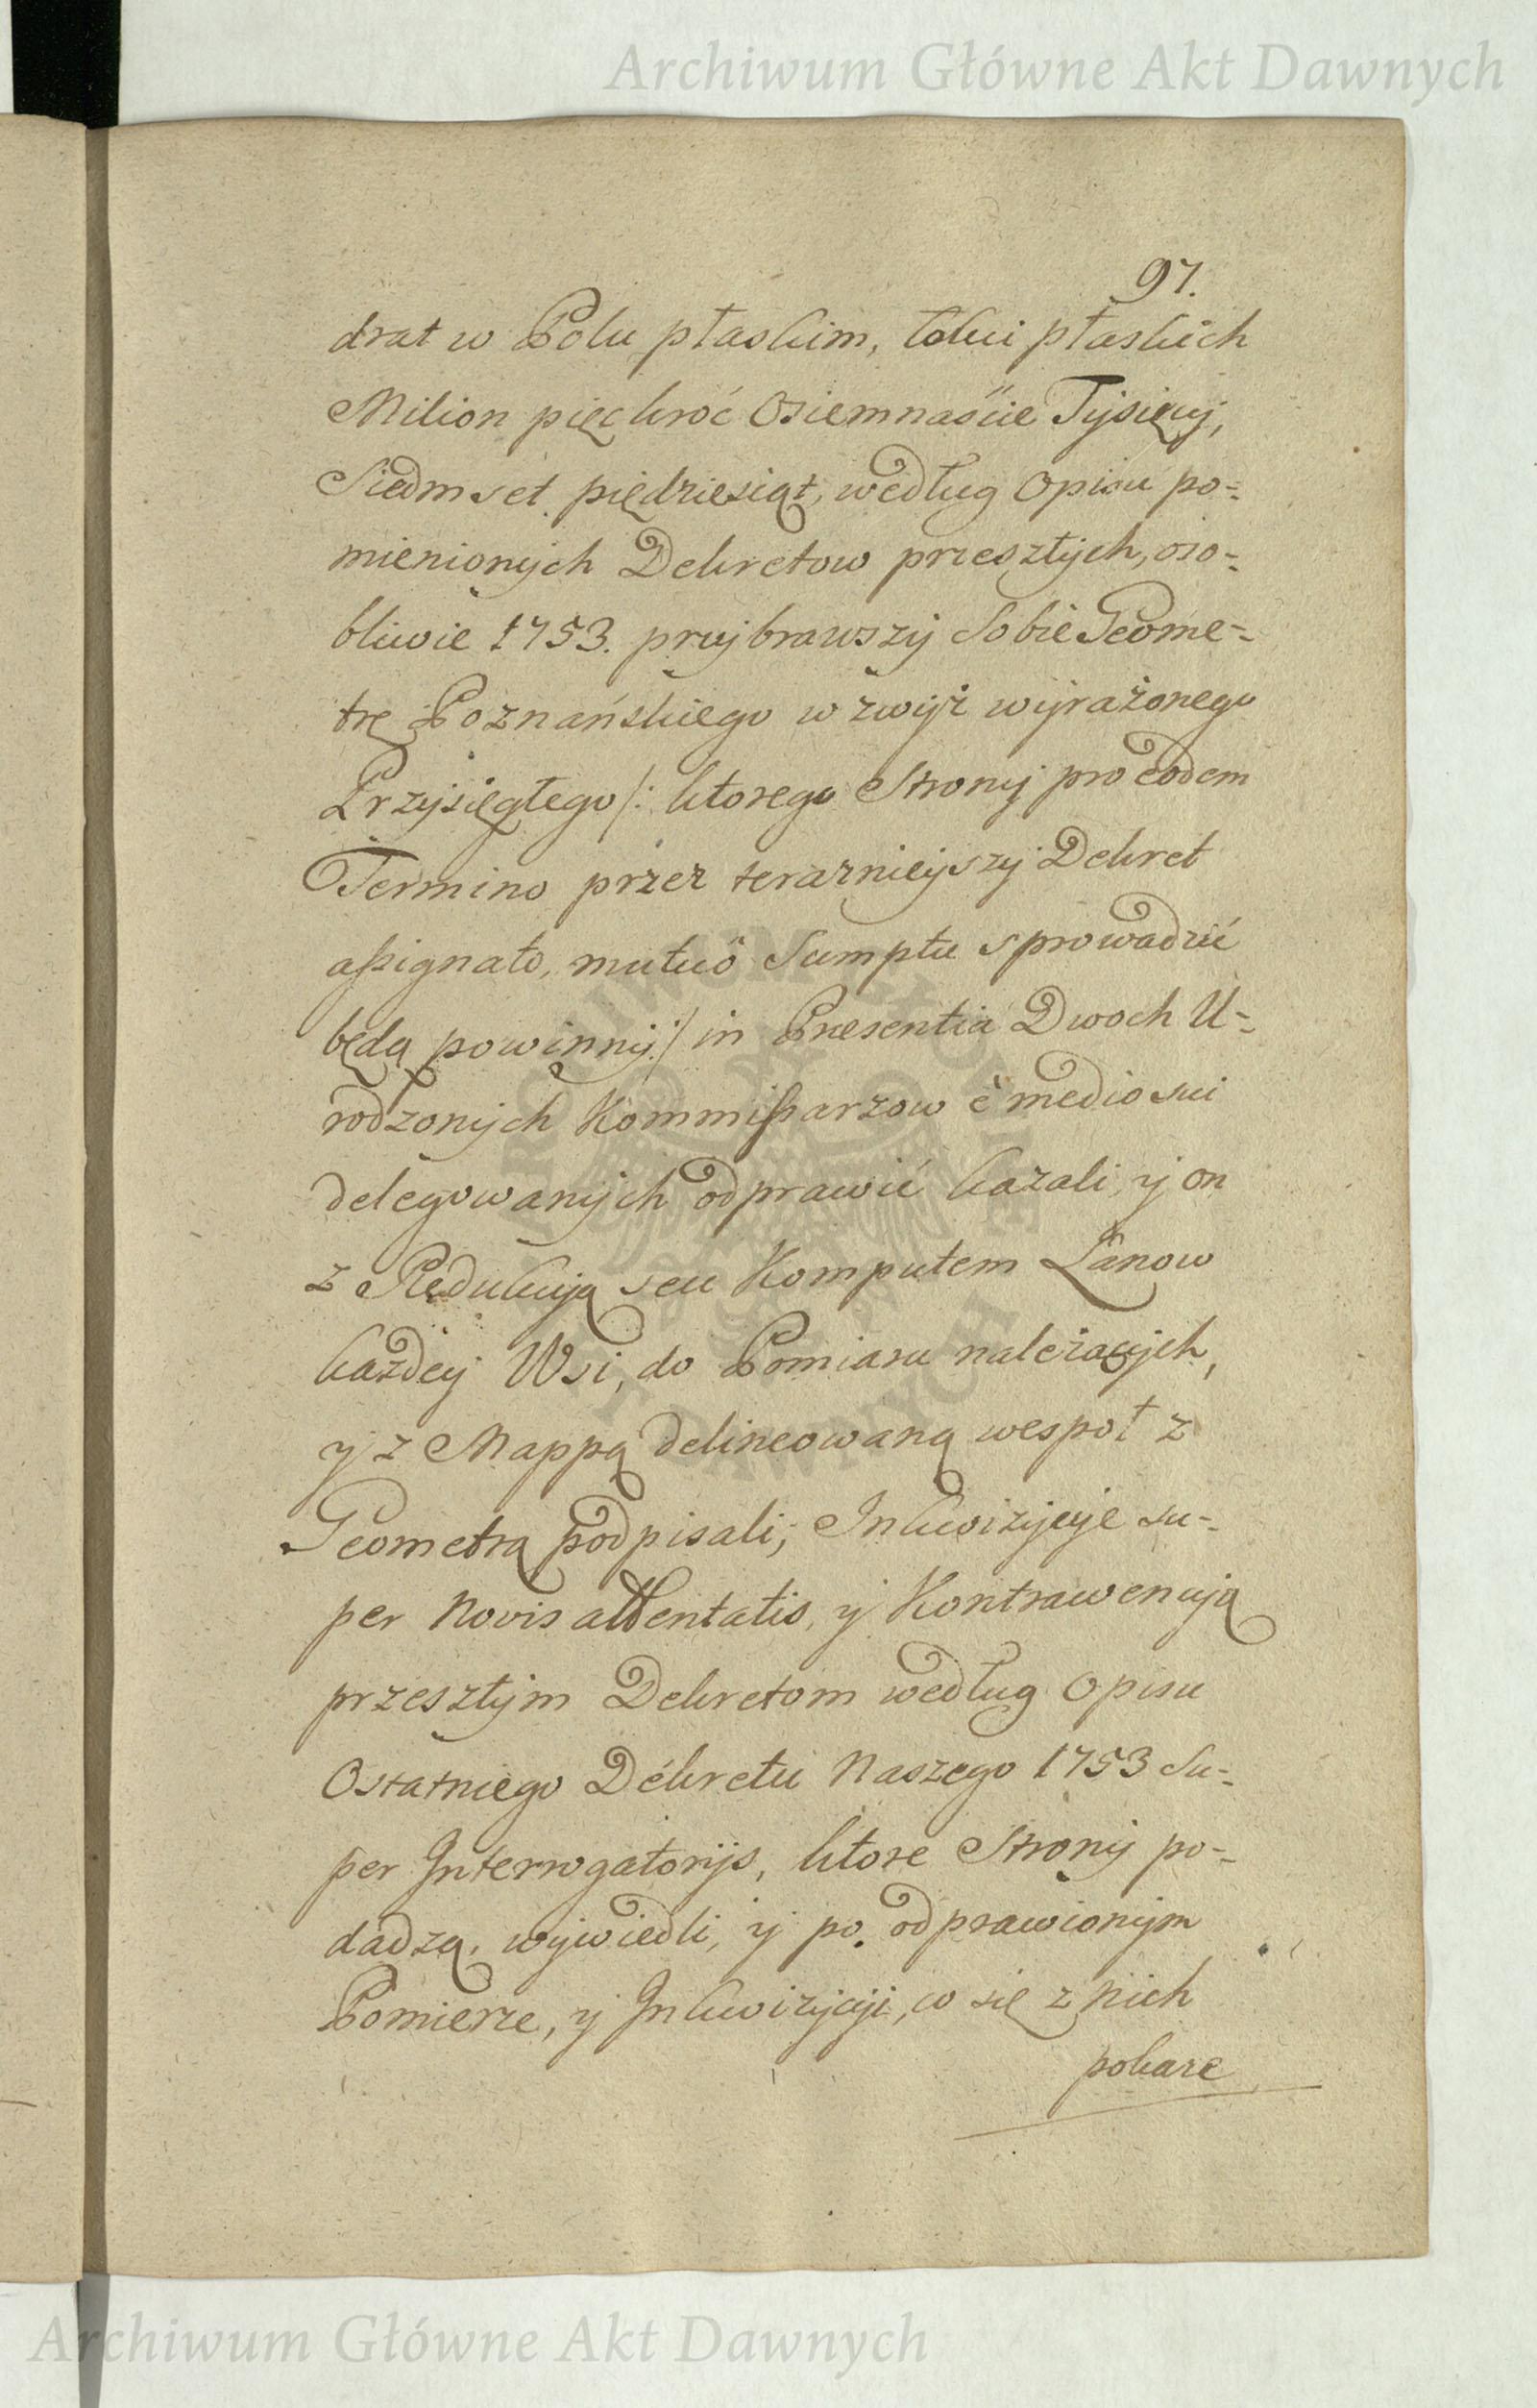 Archiwum Główne Akt Dawnych
97.
drat w Polu płaskim, łokci płaskich
Milion pięckroć Osiemnaście Tysięcy,
Siedmset piędziesiąt, według Opisu po=
mienionych Dekretow przeszłych, oso=
bliwie 1753. przybrawszy Sobie Geome=
trę Poznańskiego w zwyż wyrażonego
Przysięgłego /: ktorego Strony pro eodem
Termino przez terazniejszy Dekret
assignato, mutuô Sumptu sprowadzić
będą powinny :/ in Præsentia Dwoch U=
rodzonych Kommissarzow è medio sui
delegowanych odprawić kazali, y on
z Redukcyą seu Komputem Łanow
każdey Wsi, do Pomiaru należących,
y z Mappą delineowaną wespoł z
Geometrą podpisali; Inkwizycye su=
per Novis attentatis, y Kontrawencyą
przeszłym Dekretom według Opisu
Ostatniego Dekretu Naszego 1753 Su=
per Interrogatoriis, ktore Strony po=
dadzą, wywiedli, y po odprawionym
Pomierze, y Inkwizycyi, co się z nich
pokaze
ARCHIWUM GŁÓWNE AKT DAWNYCH
Archiwum Główne Akt Dawnych